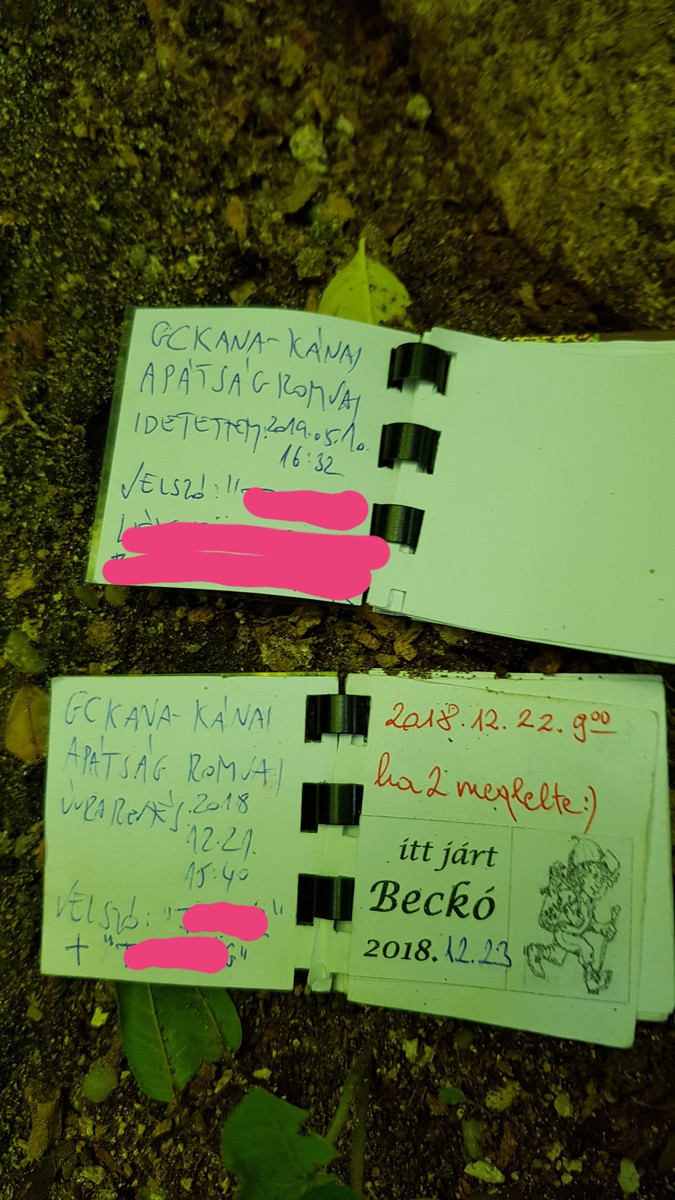 GCKANA-KÁNAI
APÁTSÁG ROMJAI
IDETETTEM: 2019.05.10.
16:32
JELSZÓ: "
GCKANA-KÁNAI
APÁTSÁG ROMJAI
ÚJRAREJTÉS: 2018
12.21.
15:40
JELSZÓ: " "
+ " G"
2018.12.22. 9⁰⁰
ha2 meglelte:)
itt járt
Beckó
2018.12.23